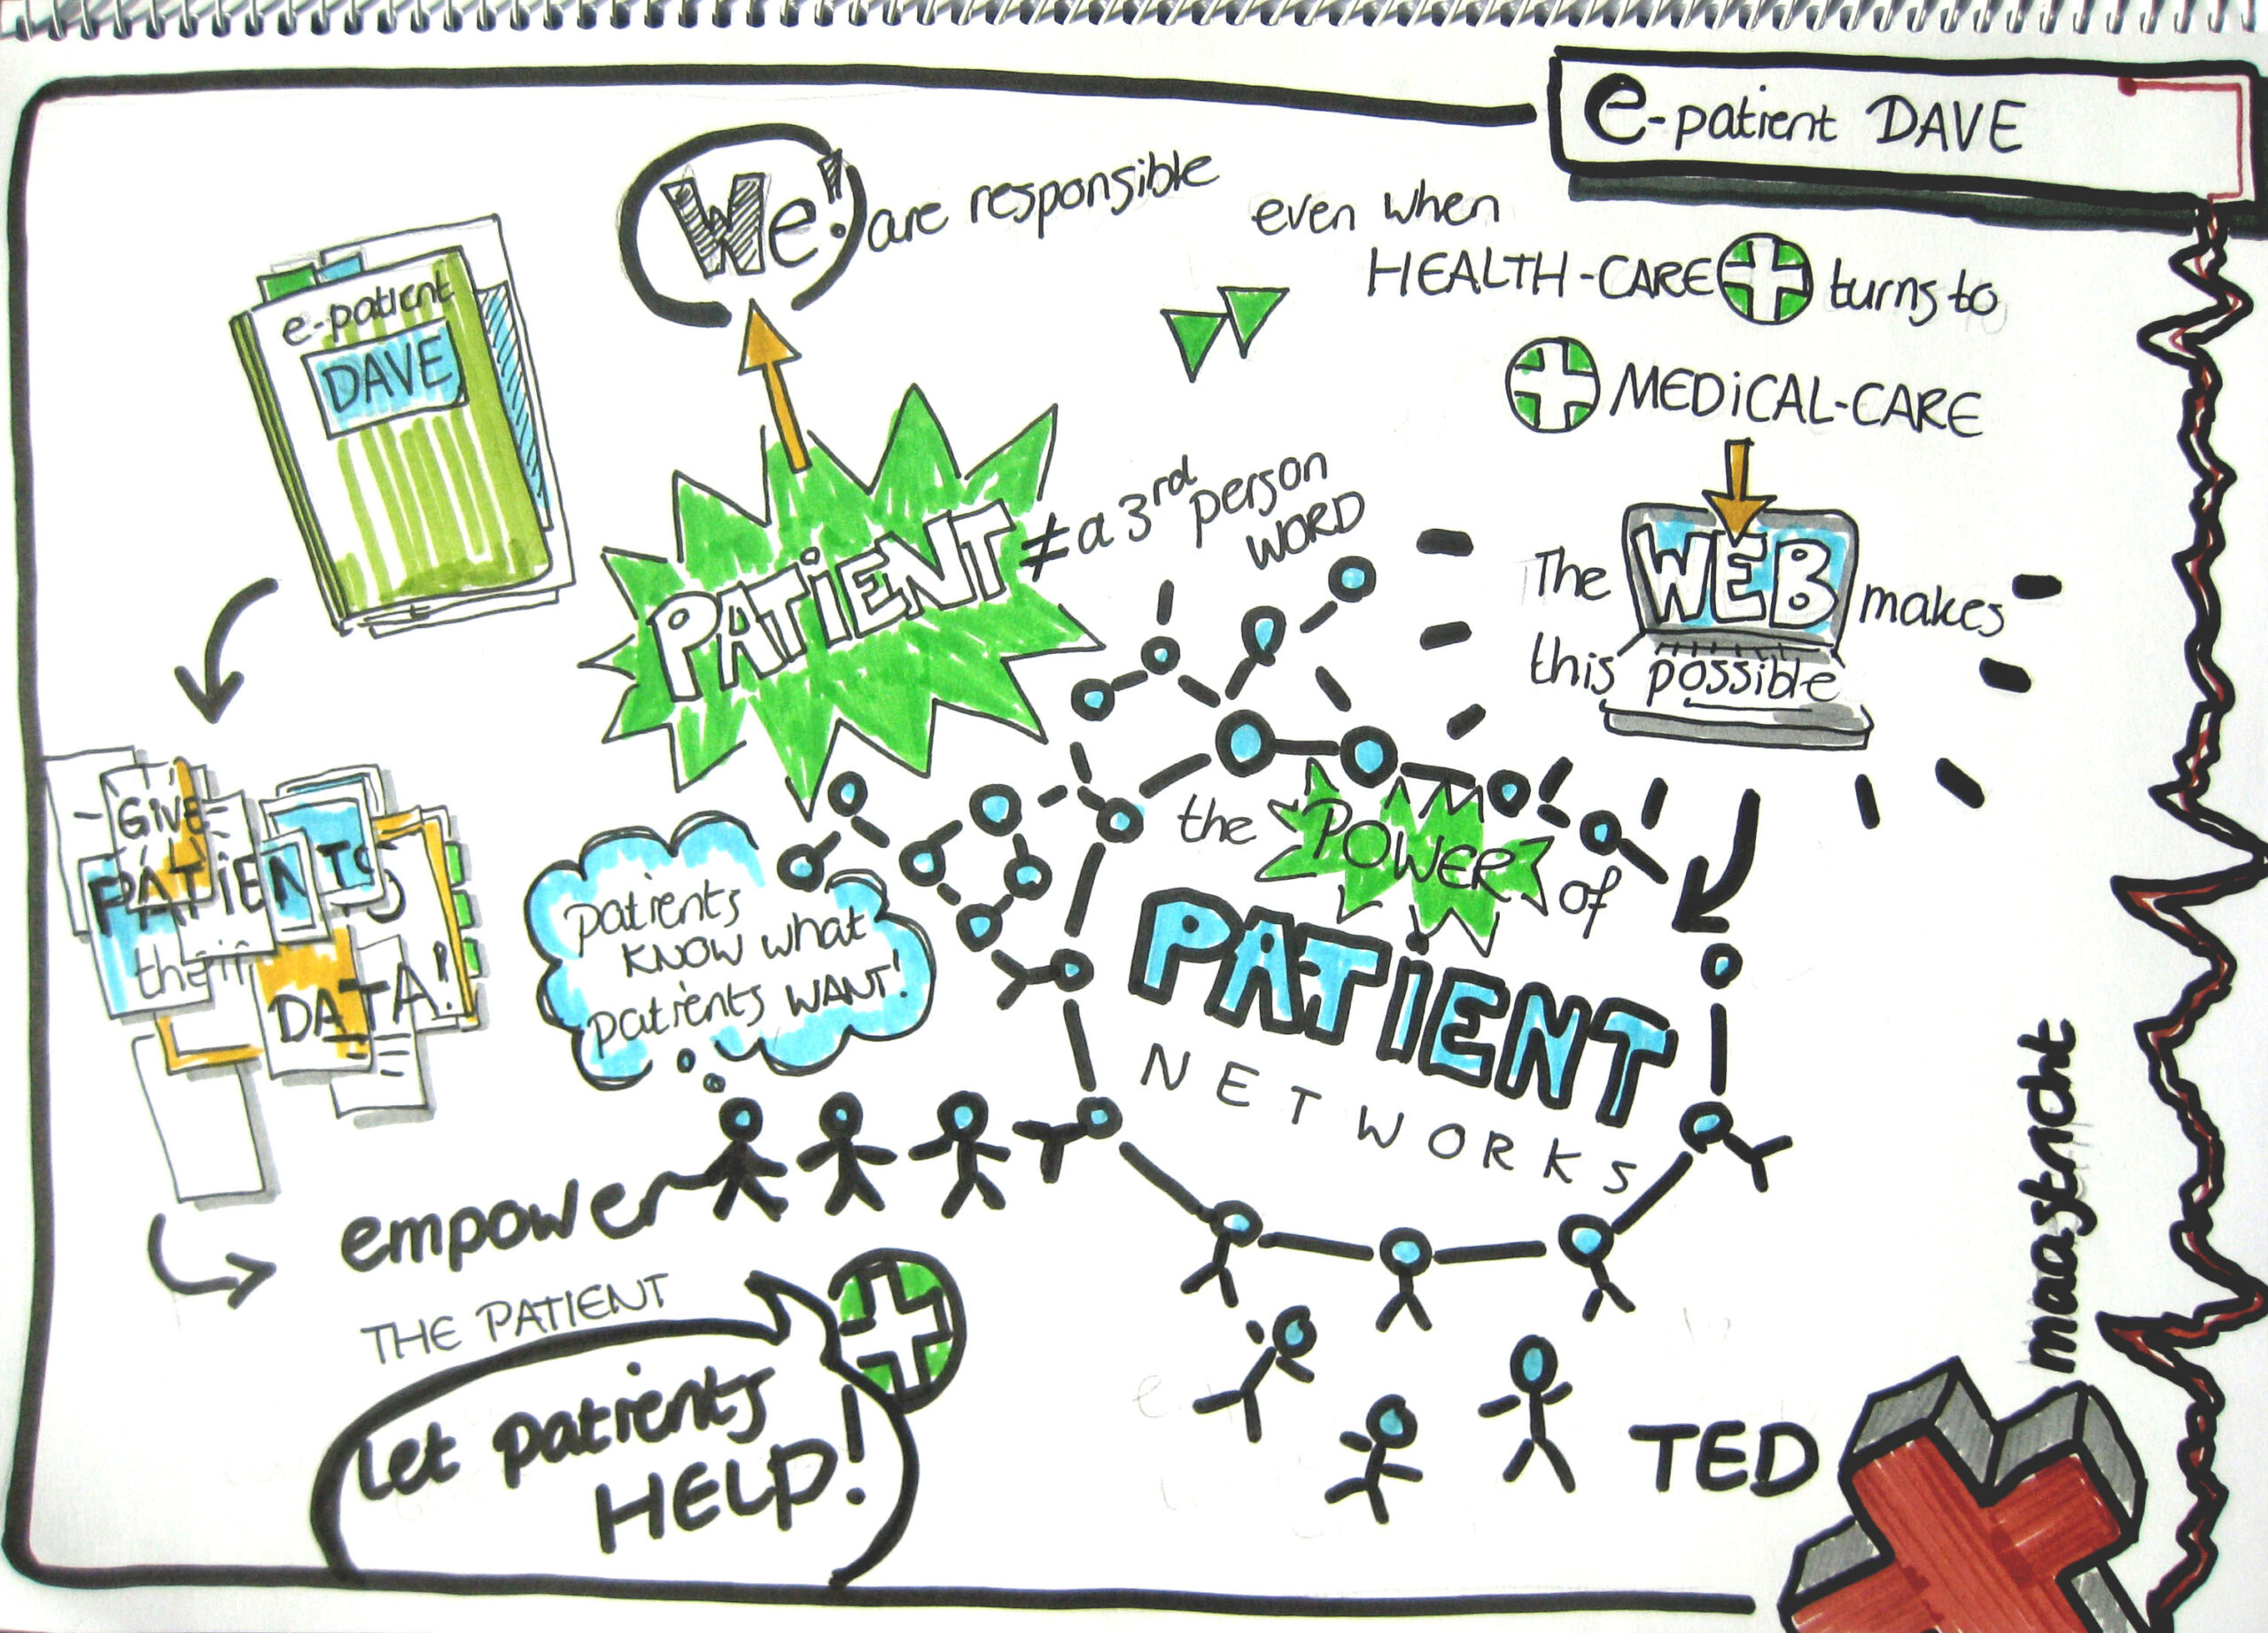 e-patient DAVE
We! are responsible
even when
HEALTH-CARE turns to
MEDICAL-CARE
e-patient
DAVE
PATIENT ≠ a 3rd person
WORD
The WEB makes
this possible
GIVE
PATIENTS
their
DATA!
patients
KNOW what
patients WANT!
the POWER of
PATIENT
NETWORKS
empower
THE PATIENT
Let patients
HELP!
TED
maastricht